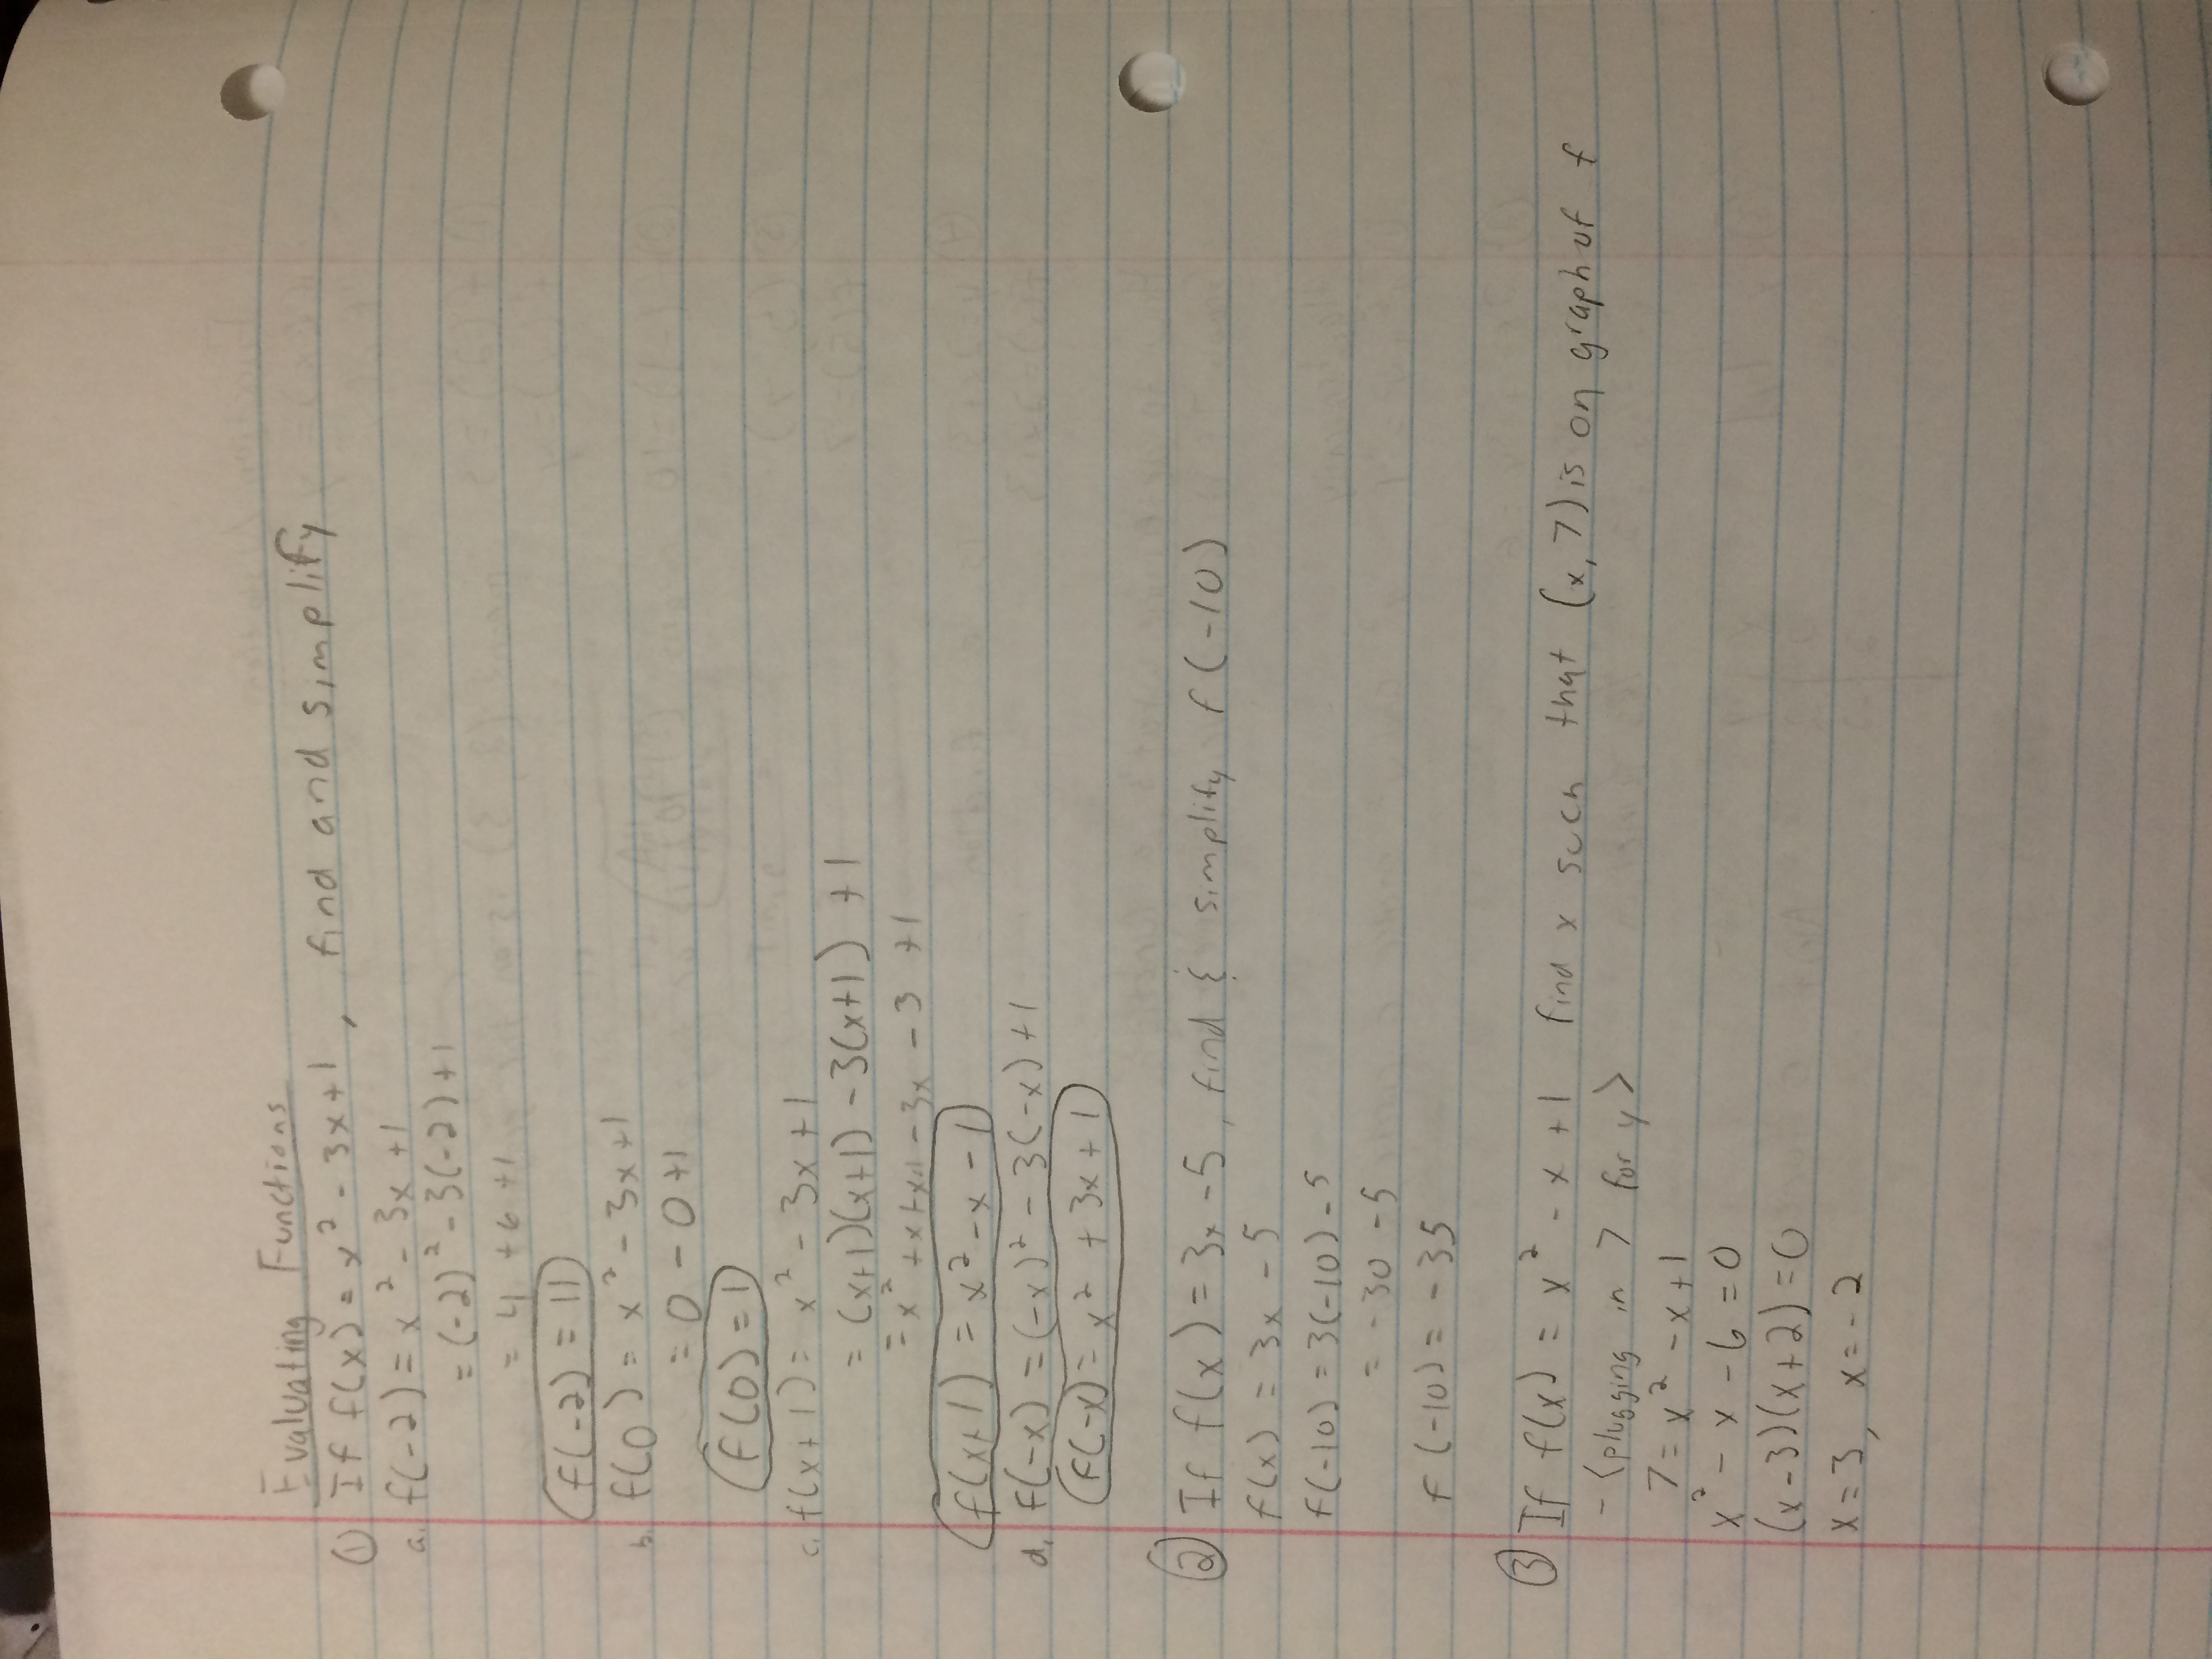 Evaluating Functions
① If f(x) = x² - 3x + 1, find and simplify
a. f(-2) = x² - 3x + 1
= (-2)² - 3(-2) + 1
= 4 + 6 + 1
f(-2) = 11
b. f(0) = x² - 3x + 1
= 0 - 0 + 1
f(0) = 1
c. f(x+1) = x² - 3x + 1
= (x+1)(x+1) - 3(x+1) + 1
= x² + x + x + 1 - 3x - 3 + 1
f(x+1) = x² - x - 1
d. f(-x) = (-x)² - 3(-x) + 1
f(-x) = x² + 3x + 1
② If f(x) = 3x - 5, find & simplify f(-10)
f(x) = 3x - 5
f(-10) = 3(-10) - 5
= -30 - 5
f(-10) = -35
③ If f(x) = x² - x + 1 find x such that (x, 7) is on graph of f
- <plugging in 7 for y>
7 = x² - x + 1
x² - x - 6 = 0
(x - 3)(x + 2) = 0
x = 3, x = -2